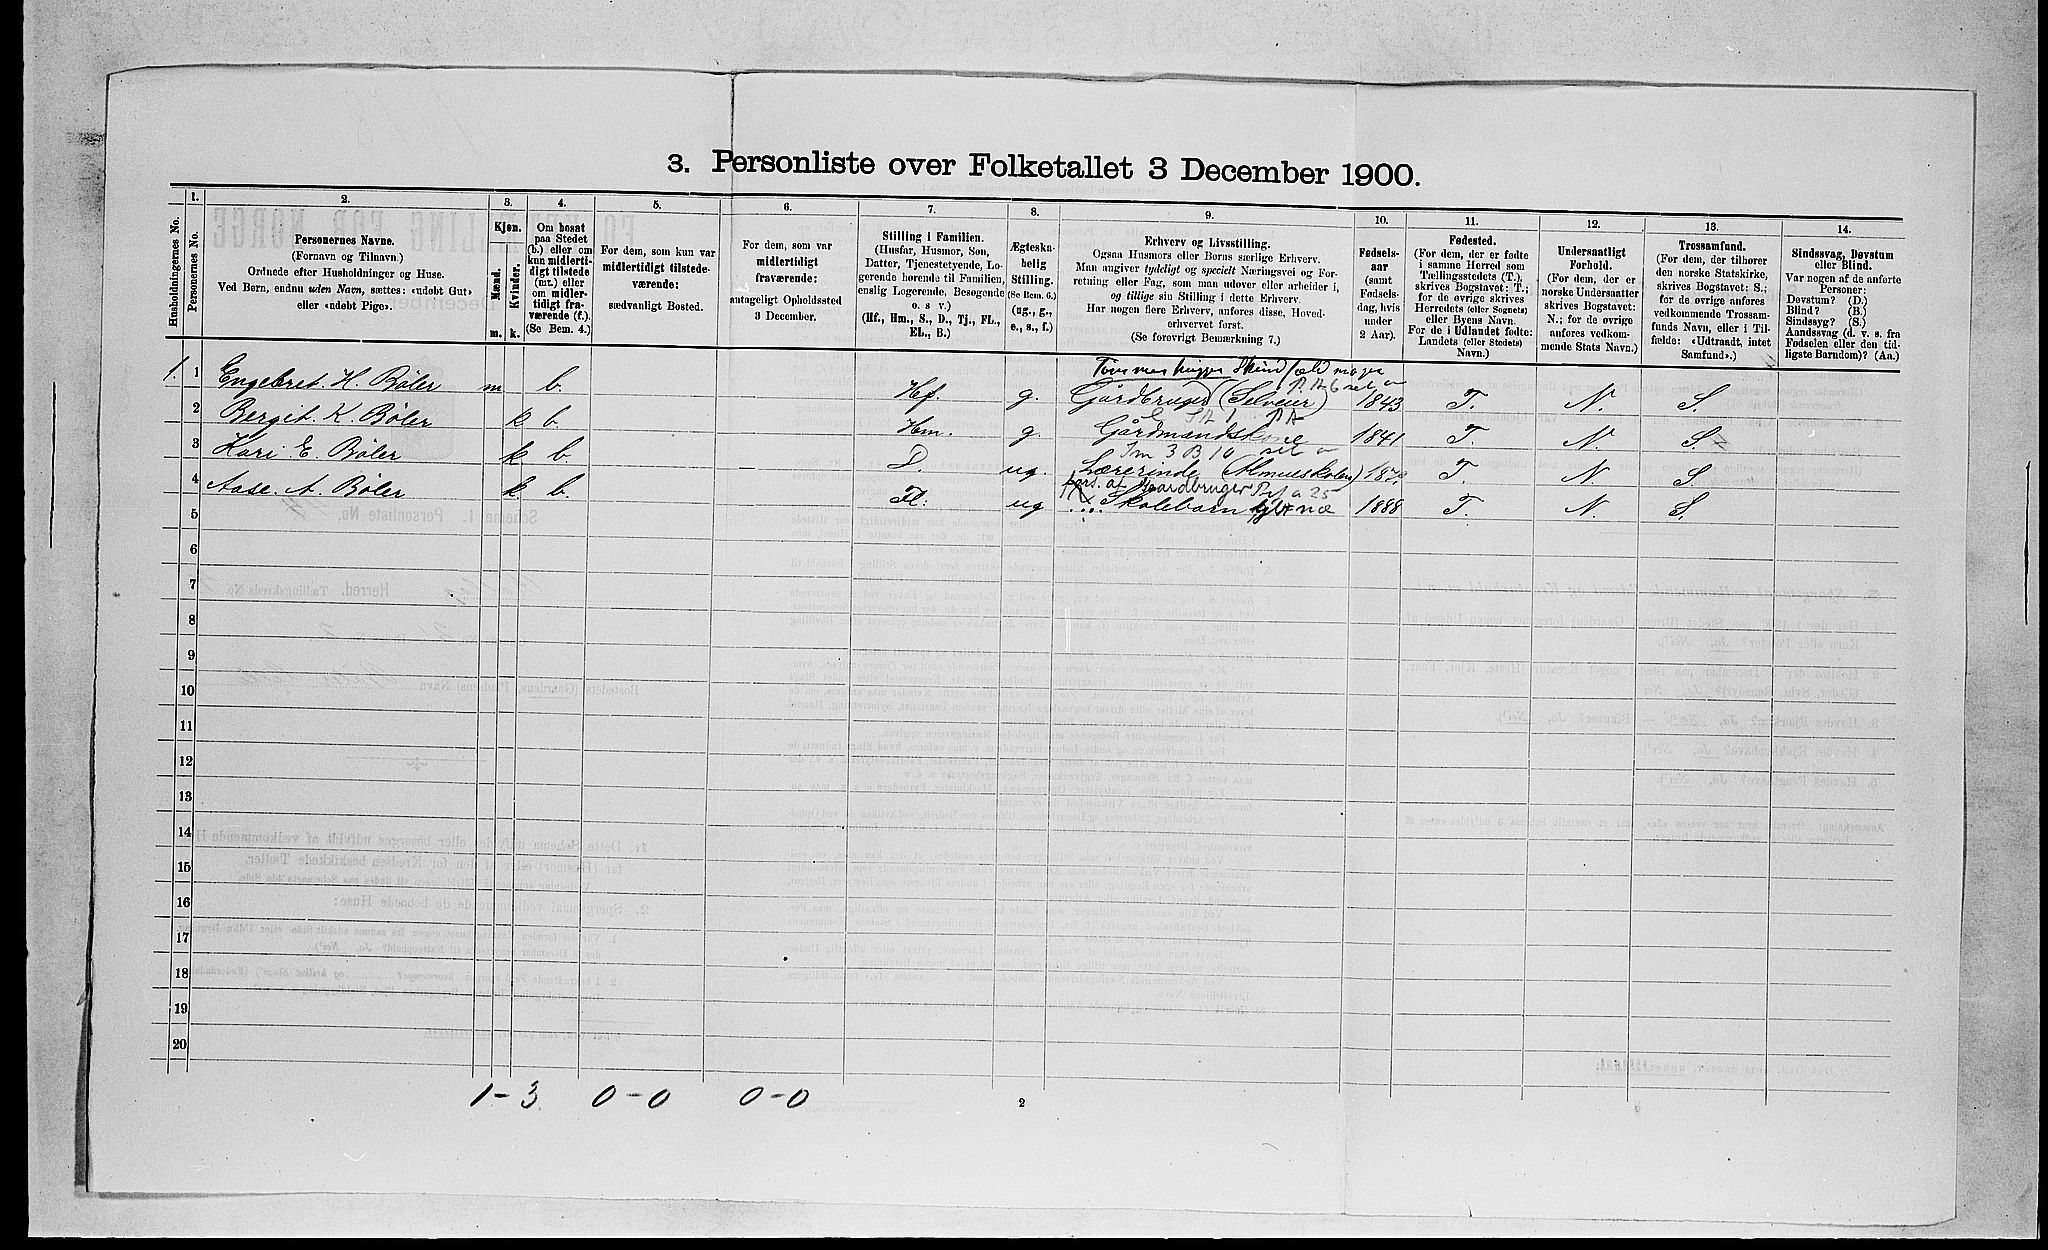 3. Personliste over Folketallet 3 December 1900.
Husholdningernes No.
1.
Personernes No.
2.
Personernes Navne.
(Fornavn og Tilnavn.)
Ordnede efter Husholdninger og Huse.
Ved Børn, endnu uden Navn, sættes: «udøbt Gut»
eller «udøbt Pige».
3.
Kjøn.
Mænd.
Kvinder.
m. k.
4.
Om bosat
paa Stedet
(b.) eller om
kun midlerti-
digt tilstede
(mt.) eller
om midler-
tidigt fra-
værende (f.).
(Se Bem. 4.)
5.
For dem, som kun var
midlertidigt tilstede-
værende:
sædvanligt Bosted.
6.
For dem, som var
midlertidigt
fraværende:
antageligt Opholdssted
3 December.
7.
Stilling i Familien.
(Husfar, Husmor, Søn,
Datter, Tjenestetyende, Lo-
gerende hørende til Familien,
enslig Logerende, Besøgende
o. s. v.)
(Hf., Hm., S., D., Tj., FL.,
EL., B.)
8.
Ægteska-
belig
Stilling.
(Se Bem. 6.)
(ug., g.,
e., s., f.)
9.
Erhverv og Livsstilling.
Ogsaa Husmors eller Børns særlige Erhverv.
Man angiver tydeligt og specielt Næringsvei og For-
retning eller Fag, som man udøver eller arbeider i,
og tillige sin Stilling i dette Erhverv.
Har nogen flere Erhverv, anføres disse, Hoved-
erhvervet først.
(Se forøvrigt Bemærkning 7.)
10.
Fødsels-
aar
(samt
Fødsels-
dag, hvis
under
2 Aar).
11.
Fødested.
(For dem, der er fødte
i samme Herred som
Tællingsstedets (T.),
skrives Bogstavet: T.;
for de øvrige skrives
Herredets (eller Sognets)
eller Byens Navn.
For de i Udlandet fødte:
Landets (eller Stedets)
Navn.)
12.
Undersaatligt
Forhold.
(For dem, der er
norske Undersaatter
skrives Bogstavet:
N.; for de øvrige
anføres vedkom-
mende Stats Navn.)
13.
Trossamfund.
(For dem, der tilhører
den norske Statskirke,
skrives Bogstavet: S.;
for de øvrige anføres
vedkommende Trossam-
funds Navn, eller i Til-
fælde: «Udtraadt, intet
Samfund».)
14.
Sindssvag, Døvstum
eller Blind.
Var nogen af de anførte
Personer:
Døvstum? (D.)
Blind? (B.)
Sindssyg? (S.)
Aandssvag (d. v. s. fra
Fødselen eller den tid-
ligste Barndom)? (Aa.)
1. 1 Engebret. H. Bøler m b. Hf. g. Gårdbruger (Selveier) 1843 T. N. S.
2 Bergit. K. Bøler k b. Hm. g. Gårdmandskone 1841 T. N S.
Im 3 B 10
3 Kari E. Bøler k b. D. ug. Lærerinde (Almueskolen) T. N S.
fors. af Gaardbruger
4 Aase. A. Bøler k b. Fl. ug Skolebarn 1888 T. N. S.
5
6
7
8
9
10
11
12
13
14
15
16
17
18
19
20
1-3 0-0 0-0
2